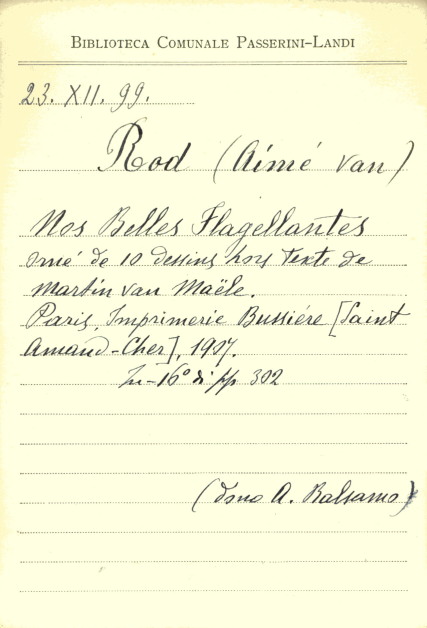 BIBLIOTECA COMUNALE PASSERINI-LANDI
23. XII. 99.
Rod (Aimé van)
Nos Belles Flagellantes
orné de 10 dessins hors texte de
Martin van Maële.
Paris, Imprimerie Bussiére [Saint
Amand-Cher], 1907.
In-16° di pp 302
(dono A. Balsamo)